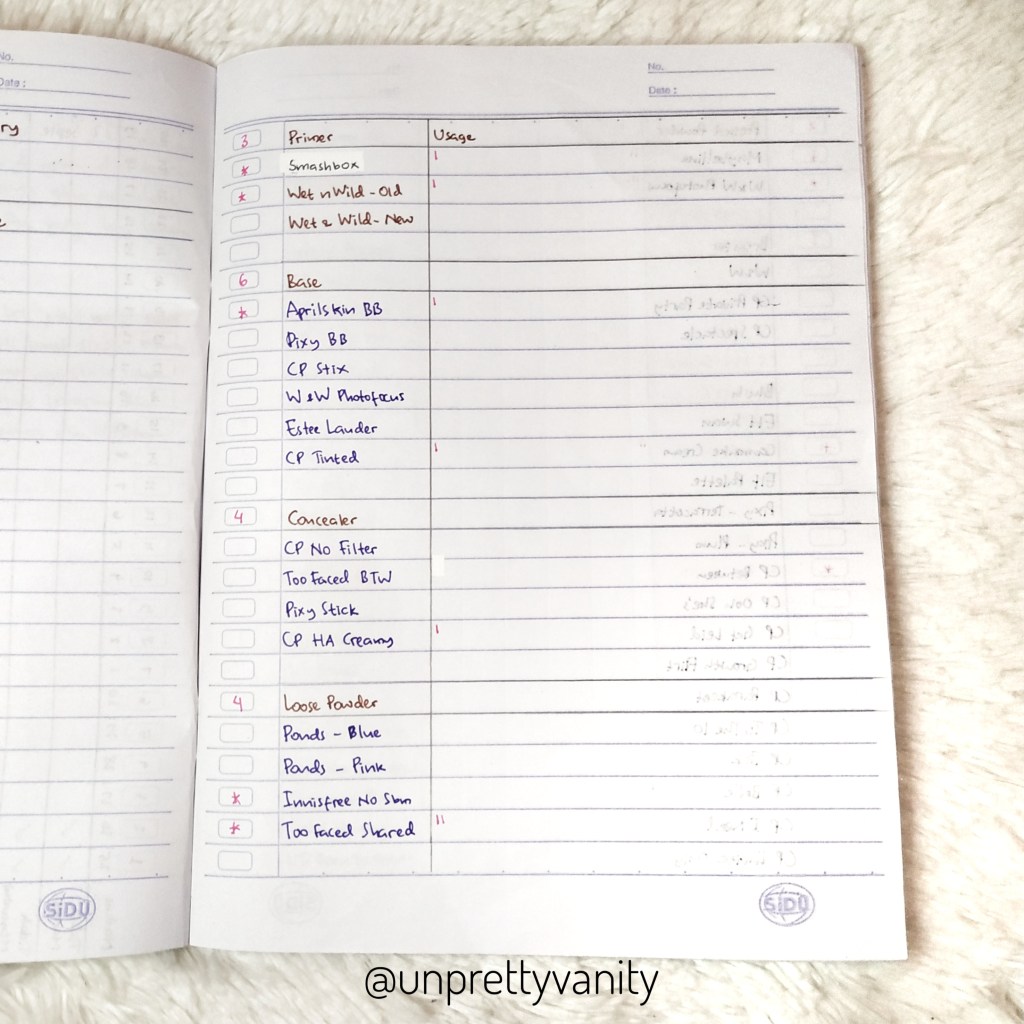 No.
Date :
ry
e
SiDU
No.
Date :
3 Primer Usage
* Smashbox I
* Wet n Wild - Old I
Wet n Wild - New
6 Base
* Aprilskin BB I
Pixy BB
CP Stix
WnW Photofocus
Estee Lauder
CP Tinted I
4 Concealer
CP No Filter
Too Faced BTW
Pixy Stick
CP HA Creamy I
4 Loose Powder
Ponds - Blue
Ponds - Pink
* Innisfree No Sbm
* Too Faced Shared II
SiDU
@unprettyvanity